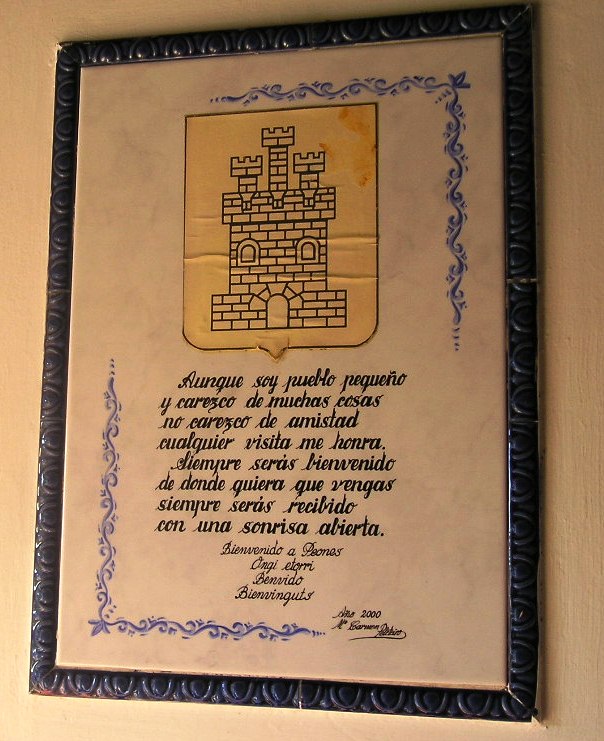 Aunque soy pueblo pequeño
y carezco de muchas cosas
no carezco de amistad
cualquier visita me honra.
Siempre serás bienvenido
de donde quiera que vengas
siempre serás recibido
con una sonrisa abierta.
Bienvenido a Peones
Ongi etorri
Benvido
Bienvinguts
Año 2000
Mª Carmen